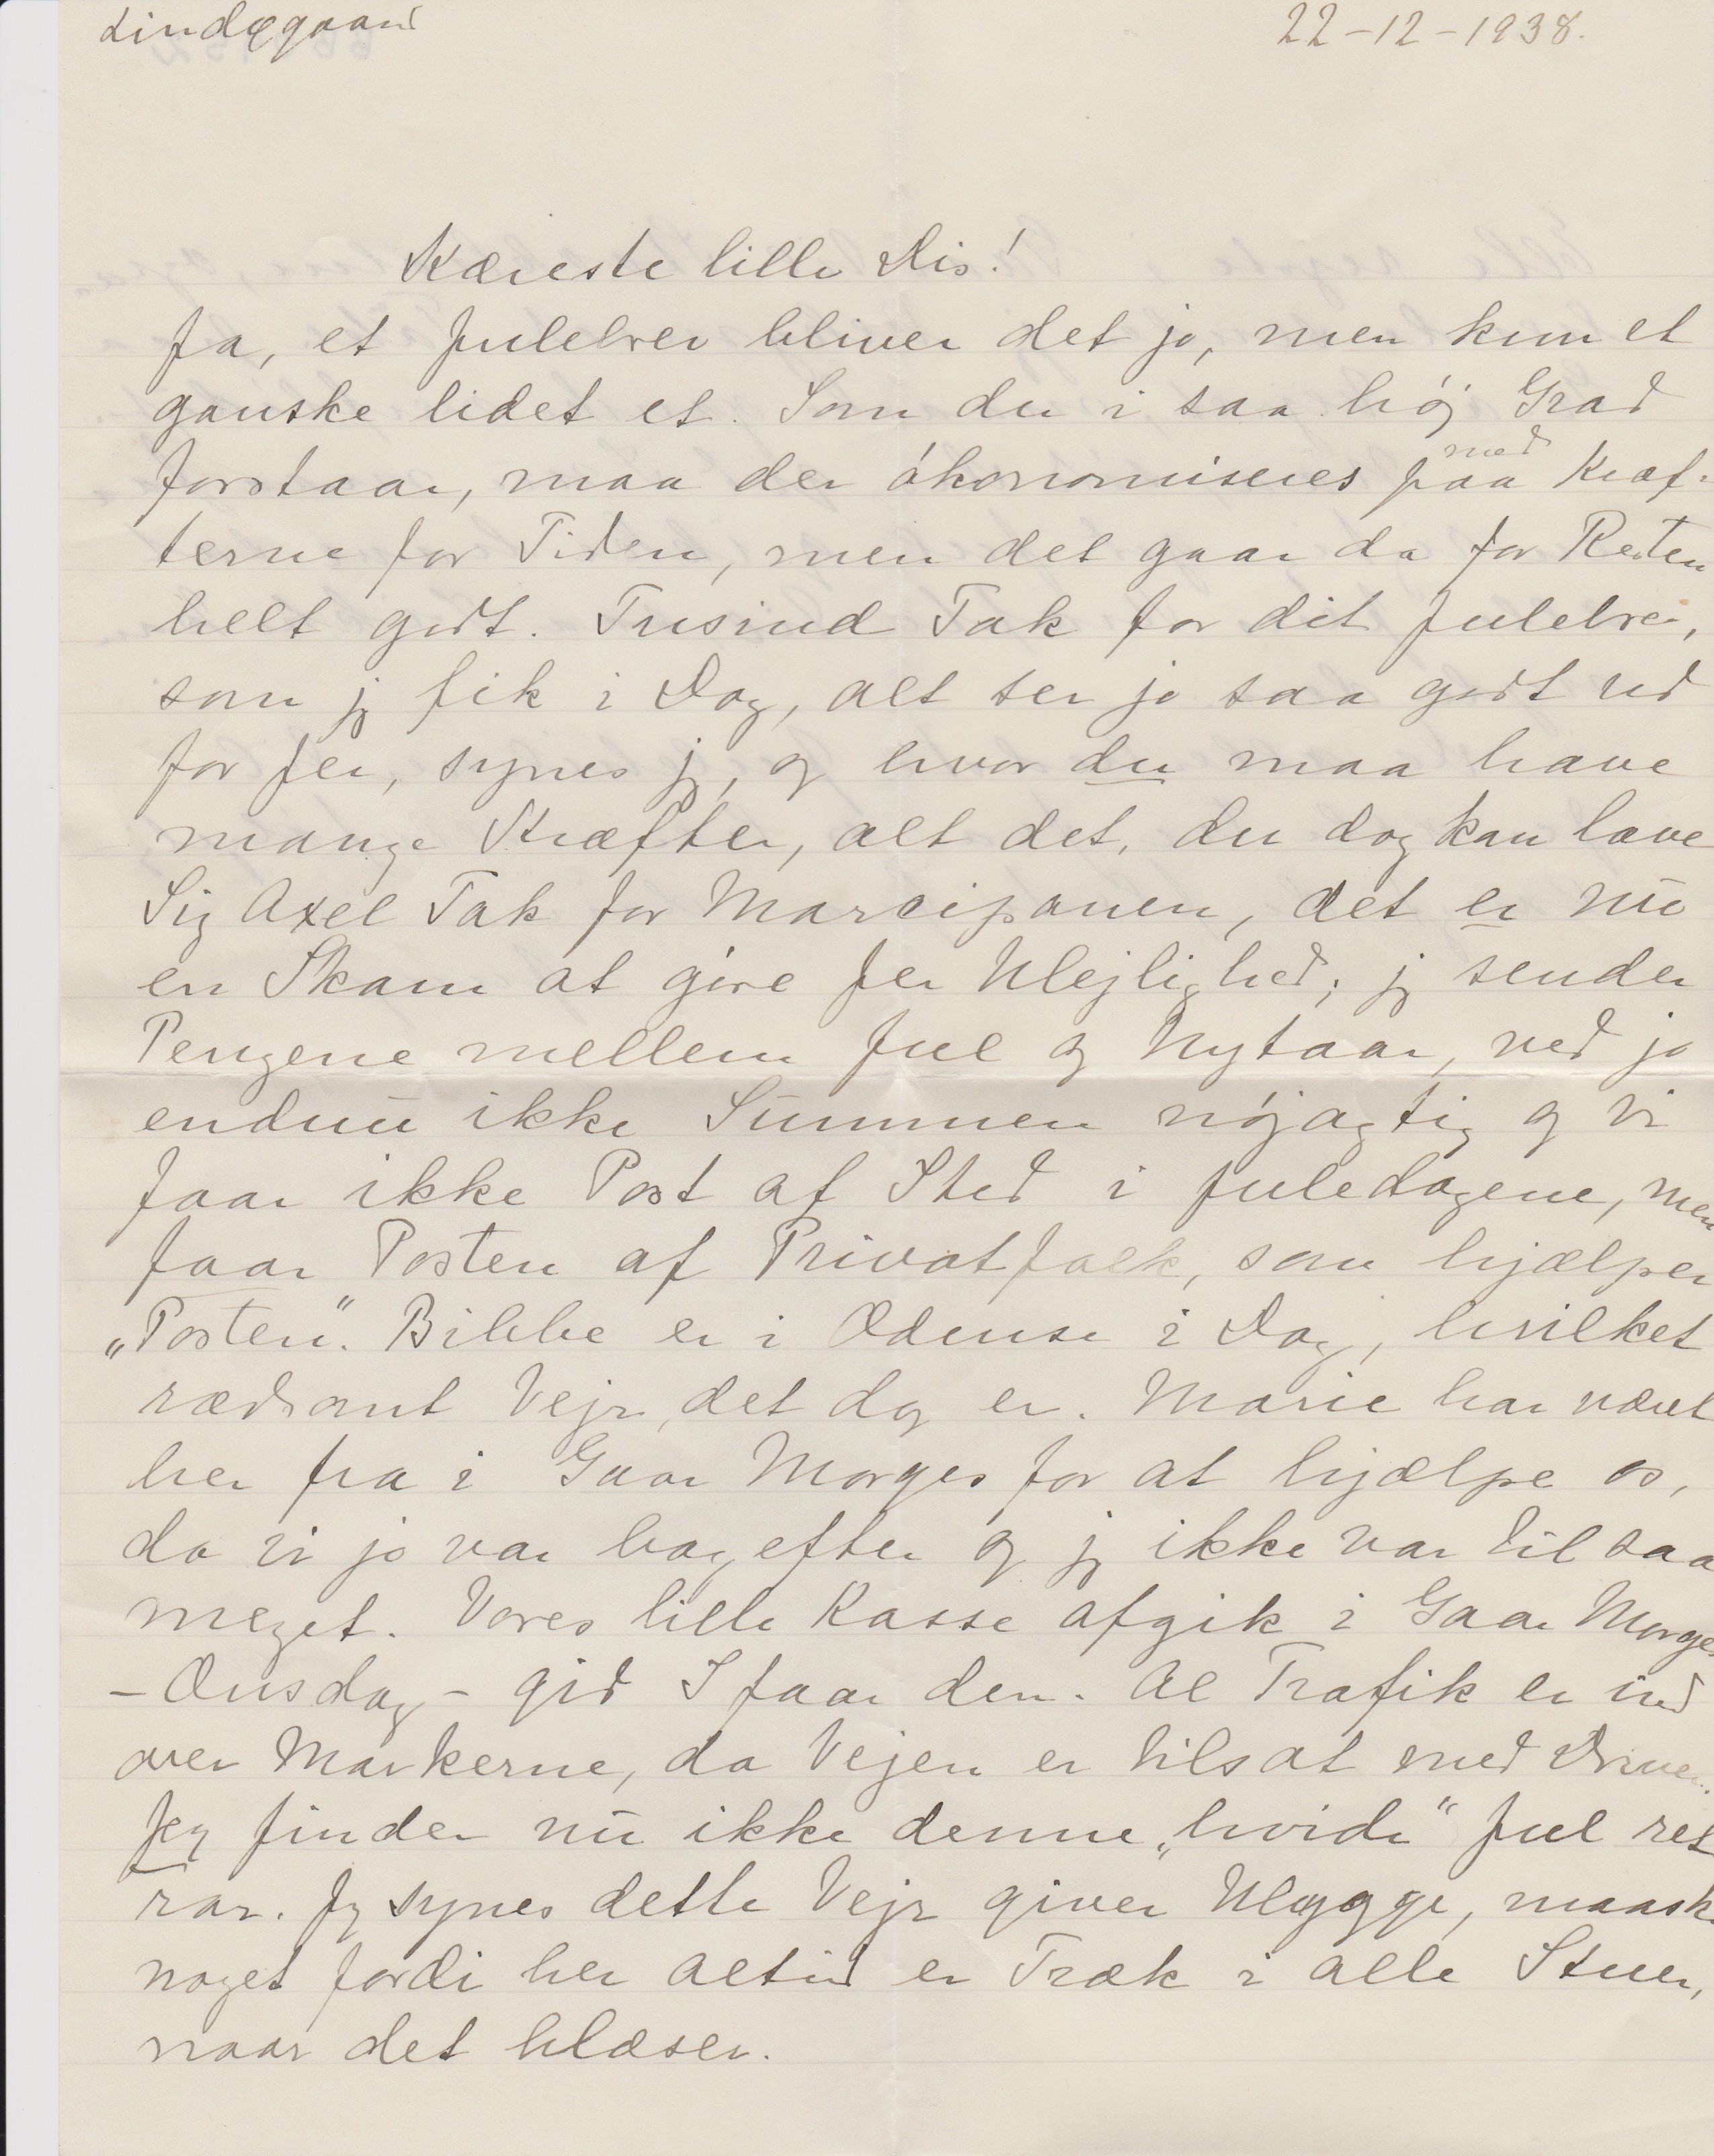 Lindøgaard 22-12-1938.
Kæreste lille Dis!
Ja, et Julebrev bliver det jo, men kun et
ganske lidet et. Som du i saa høj Grad
forstaar, maa der økonomiseres paa Kræf-
med
terne for Tiden, men det gaar da for Resten
helt godt. Tusind Tak for dit Julebrev,
som jeg fik i Dag, alt ser jo saa godt ud
for Jer, synes jeg, og hvor du maa have
mange Kræfter, alt det, du dog kan lave
Sig Axel Tak for Marcipanen, det er nu
en Skam at gøre Jer Ulejlighed; jeg sender
Pengene mellem Jul og Nytaar, ved jo
endnu ikke Summen nøjagtig og vi
faar ikke Post af Sted i Juledagene, men
faar Posten af Privatfolk, som hjælper
„Posten”. Bibbe er i Odense i Dag, hvilket
rædsomt Vejr det dog er. Marie har været
her fra i Gaar Morges for at hjælpe os,
da vi jo var bagefter og jeg ikke var til saa
meget. Vores lille Kasse afgik i Gaar Morges
- Onsdag - gid I faar den. Al Trafik er ind
over Markerne, da Vejen er tilsat med Driver.
Jeg finder nu ikke denne „hvide” Jul ret
rar. Jeg synes dette Vejr giver Uhygge, maaske
noget fordi her altid er Træk i alle Stuer,
naar det blæser.